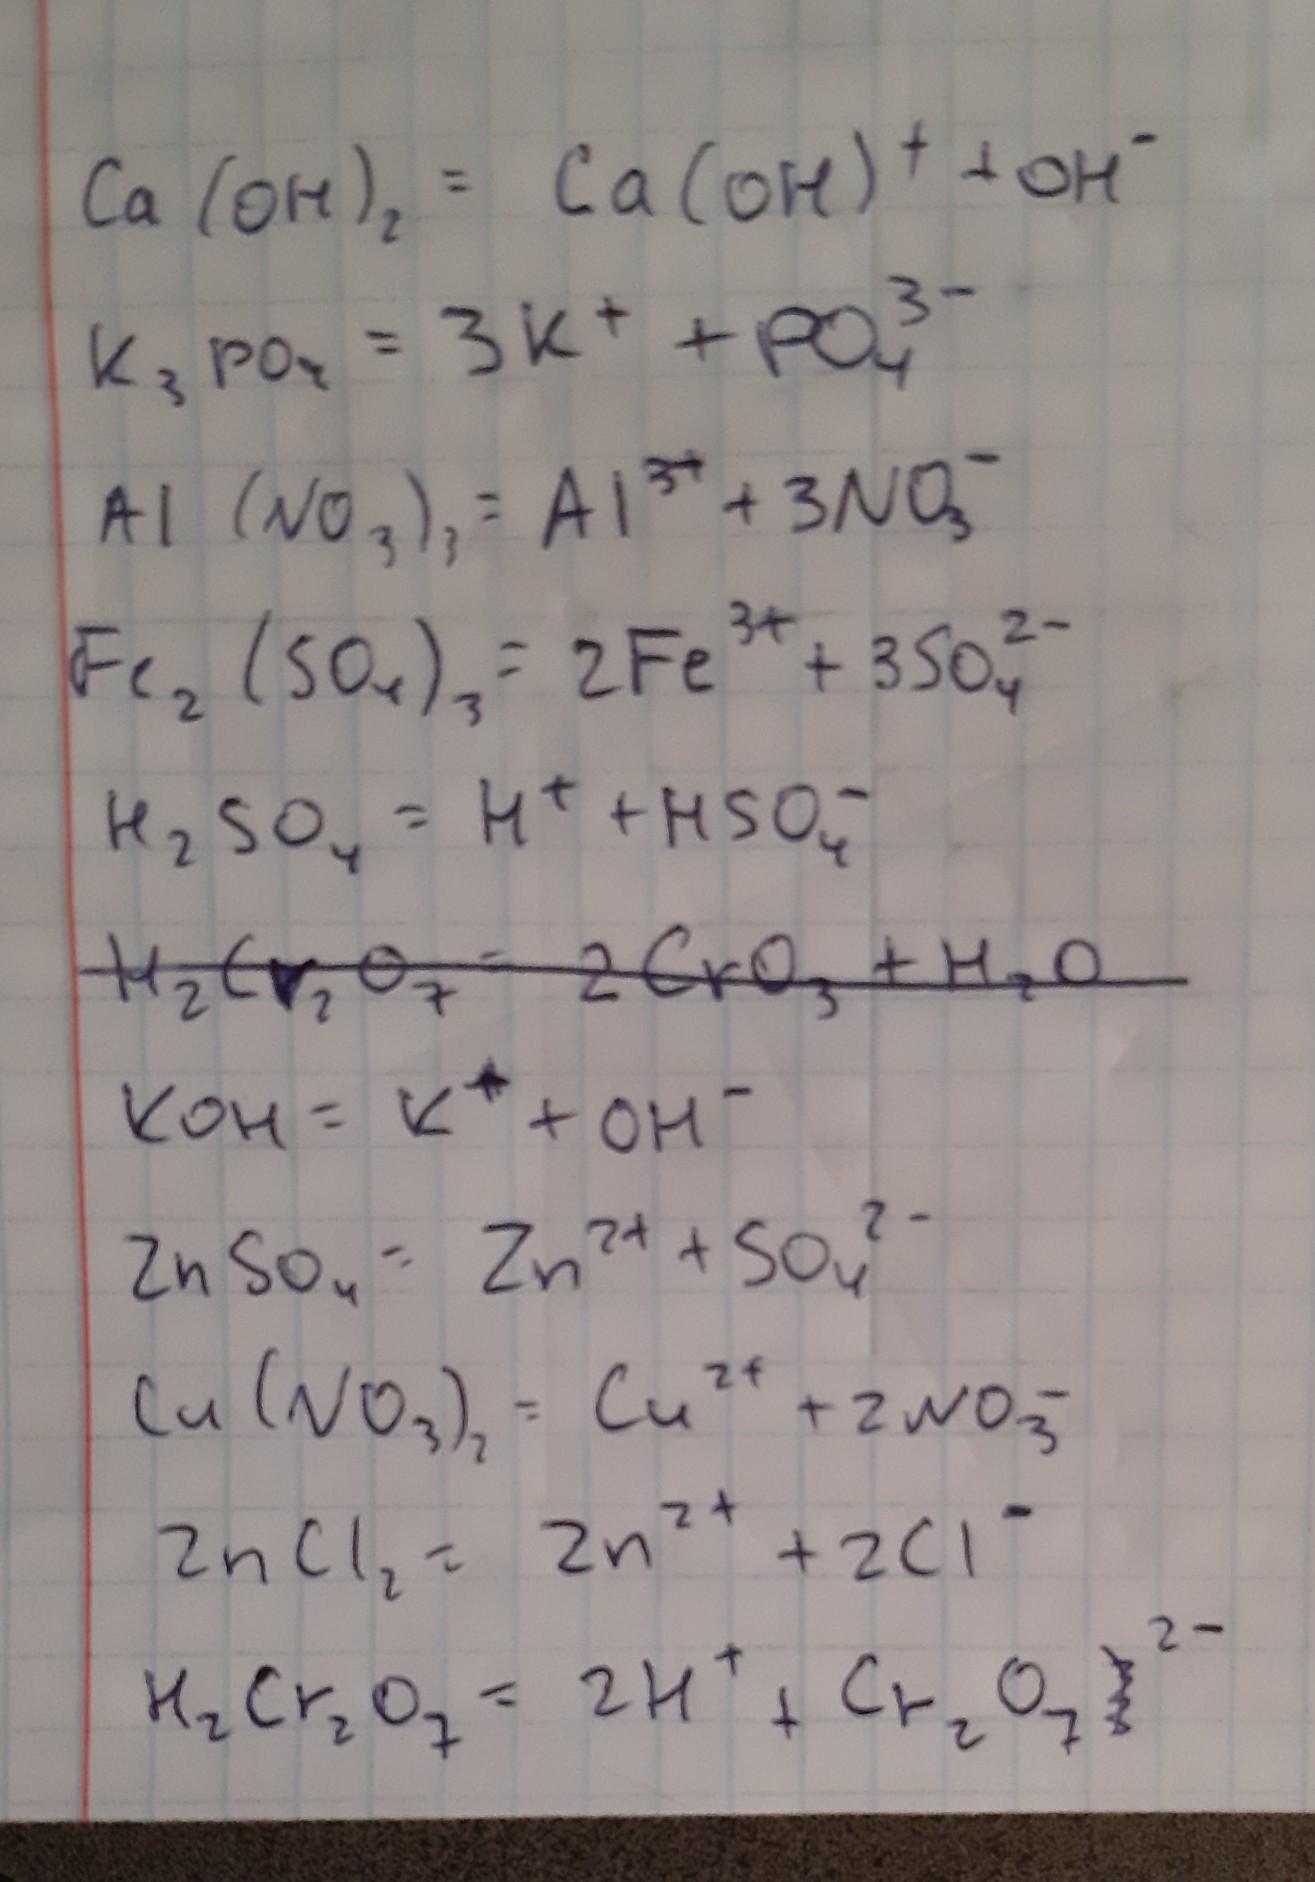 Ca(OH)₂ = Ca(OH)⁺ + OH⁻
K₃PO₄ = 3K⁺ + PO₄³⁻
Al(NO₃)₃ = Al³⁺ + 3NO₃⁻
Fe₂(SO₄)₃ = 2Fe³⁺ + 3SO₄²⁻
H₂SO₄ = H⁺ + HSO₄⁻
H₂Cr₂O₇ = 2CrO₃ + H₂O
KOH = K⁺ + OH⁻
ZnSO₄ = Zn²⁺ + SO₄²⁻
Cu(NO₃)₂ = Cu²⁺ + 2NO₃⁻
ZnCl₂ = Zn²⁺ + 2Cl⁻
H₂Cr₂O₇ = 2H⁺ + Cr₂O₇²⁻